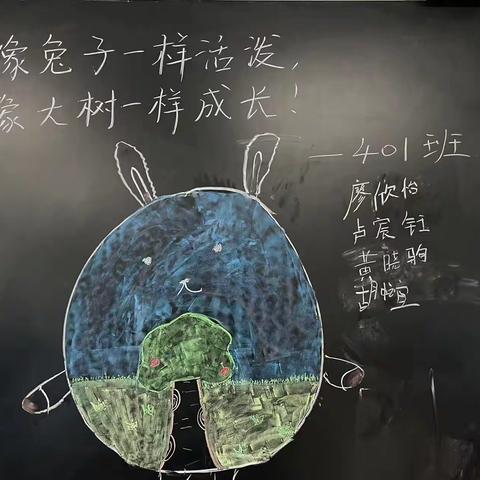 像兔子一样活泼,
像大树一样成长!
—401班
廖欣怡
卢宸钰
黄晓驹